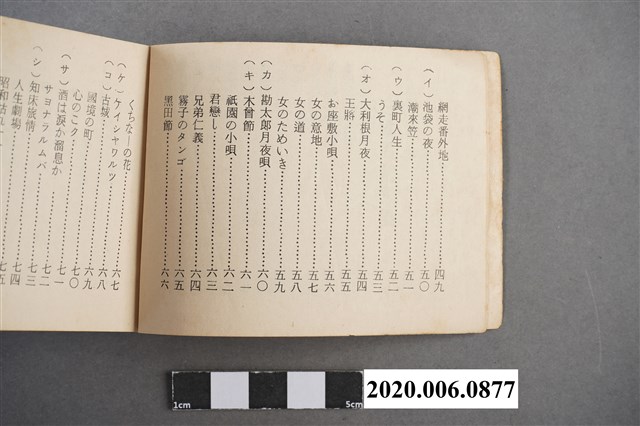 網走番外地 四九
(イ)池袋の夜 五〇
潮來笠 五一
(ウ)裏町人生 五二
うそ 五三
(オ)大利根月夜 五四
王將 五五
お座敷小唄 五六
女の意地 五七
女の道 五八
女のためいき 五九
(カ)勘太郎月夜唄 六〇
(キ)木曾節 六一
祇園の小唄 六二
君戀し 六三
兄弟仁義 六四
霧子のタンゴ 六五
黑田節 六六
くちなしの花 六七
(ケ)ケイシャワルツ
(コ)古城 六八
國境の町 六九
心のこり 七〇
(サ)酒は淚か溜息か 七一
サヨナラルムベ 七二
(シ)知床旅情 七三
人生劇場 七四
昭和 七五
1cm 5cm
2020.006.0877